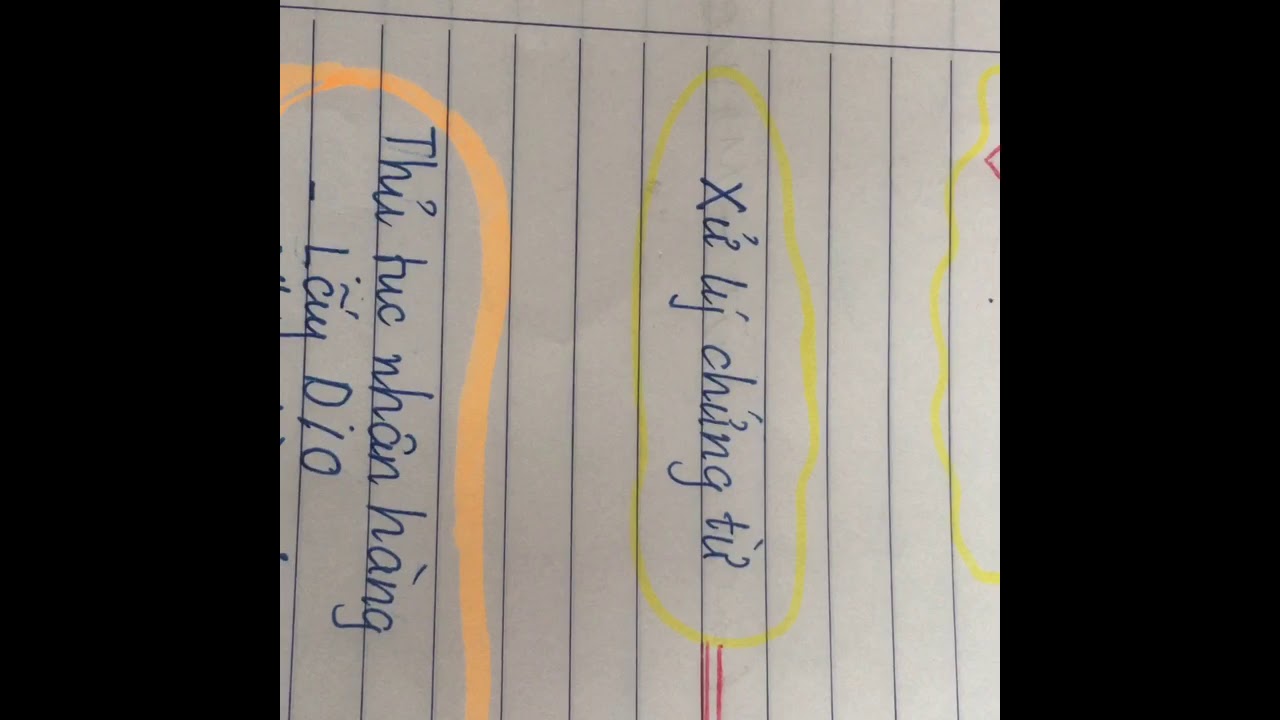 Xử lý chứng từ
Thủ tục nhận hàng
- Lấy D/O